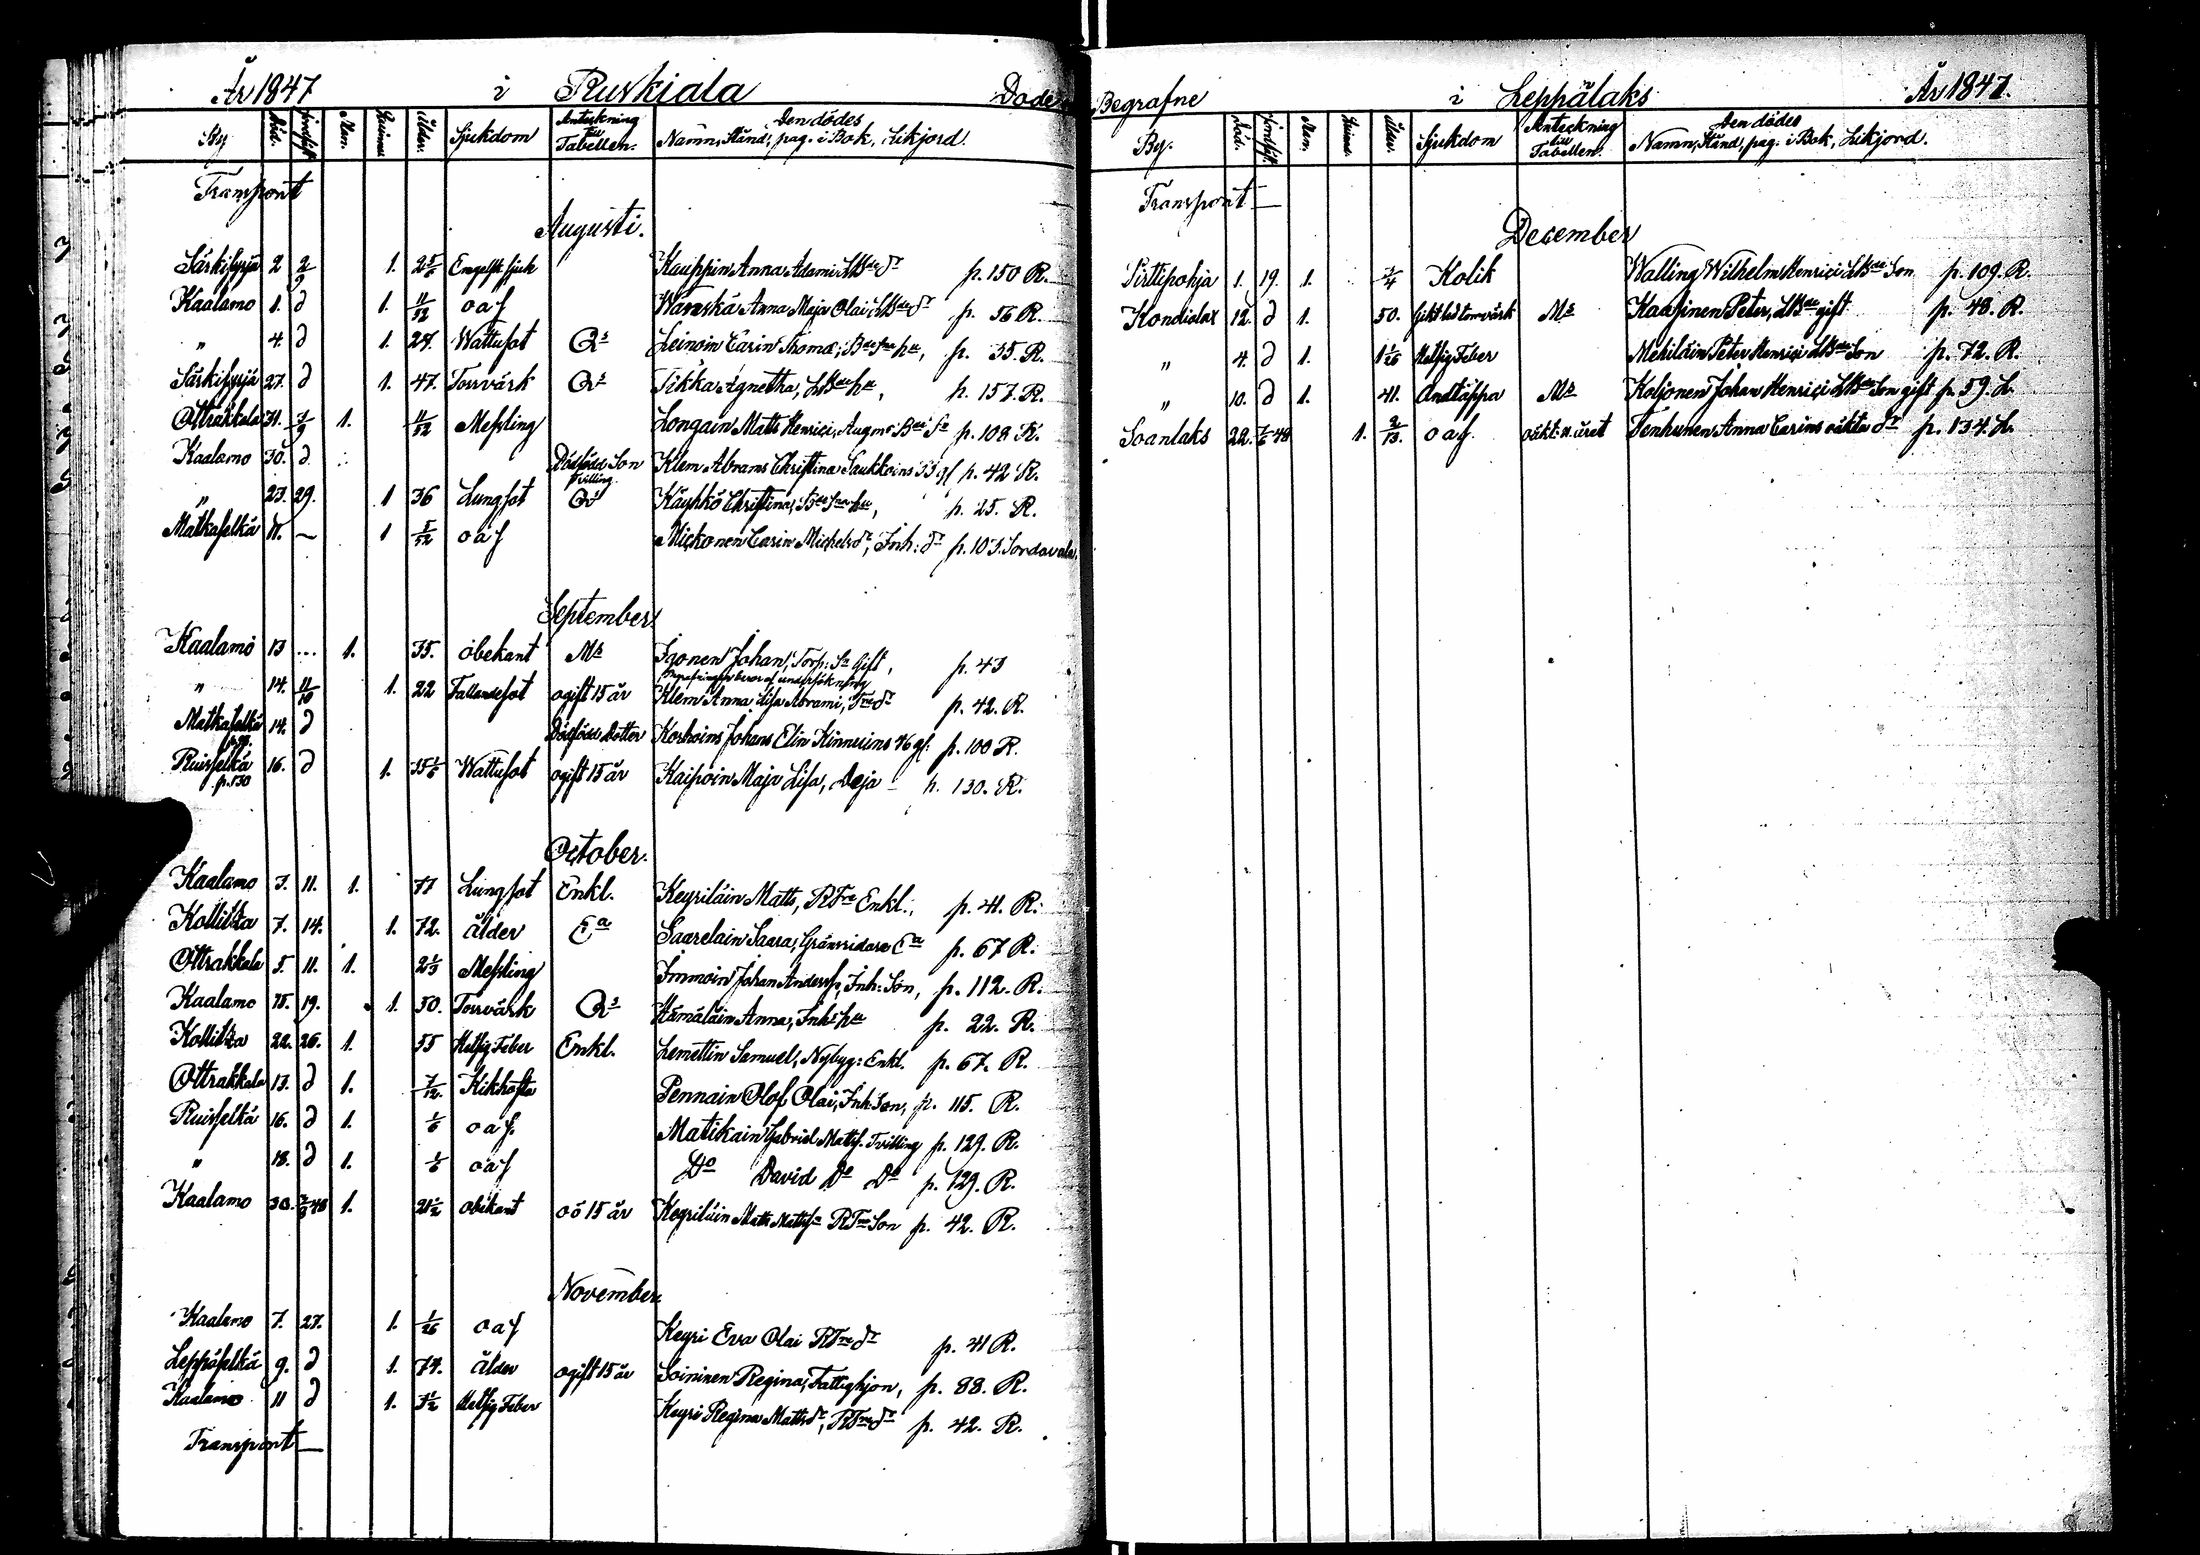 År 1847 i Ruskiala Döde
By Död. Jordfäst Men. Quinns Ålder. Sjukdom Anteckning till Tabellen. Den dödes Namn, Stånd, pag. i Bok, Likjord.
Transport
Augusti.
Särkisyrjä 2 2/9 1. 2 5/6 Engelsk sjuk Kauppin Anna Adami p. 150 R.
Kaalamo 1. d 1. 11/12 oaf Wäräskä Anna Maja Olai p. 56 R.
" 4 d 1. 27. Wattusot Leinoin Carin Thomæ, p. 35. R.
Särkisyrjä 27. d 1. 47. Torrvärk Tikka Agnetha, p. 157. R.
Ottrakkala 31. 1. 11/12 Messling Longain Matts Henrici, p. 108 R.
Kaalamo 30. d Dödfödd Son Klem Abrams Christina Saukkoins p. 42 R.
Tvilling
" 23. 29. 1 36 Lungsot Käyhkö Christina, p. 25. R.
Matkaselkä 11. — 1 5/12 oaf Mickonen Carin Michelsdr, Inh: dr p. 103. Sordavala.
September
Kaalamo 13 ... 1. 35. obekant Ironen Johan, Torp: Gift, p. 43
Begrafningen beror af undersökning
" 14. 11/10 1. 22 Fallandesot ogift 15 år Klem Anna Lisa Abrami, p. 42. R.
Matkaselkä 14. d Dödfödd Dotter Korhoins Johans Elin Kinnuins p. 100 R.
Ruisselkä 16. d 1. Wattusot ogift 15 år Kaipoin Maja Lisa, Deja p. 130. R.
p. 130
October.
Kaalamo 3. 11. 1. 77 Lungsot Enkl. Keyriläin Matts, Enkl., p. 41. R.
Kollitza 7. 14. 1. 72. Ålder Saarelain Saara, Gränsridare p. 67 R.
Ottrakkala 5. 11. 1. 2 1/3 Messling Immoin Johan Anderss, Inh: Son, p. 112. R.
Kaalamo 15. 19. 1. 30. Torrvärk Hämäläin Anna, p. 22. R.
Kollitza 22. 26. 1. 55 Hetsig Feber Enkl. Lemettin Samuel, Nybyg: Enkl. p. 67. R.
Ottrakkala 13. d 1. 7/12. Kikhosta Pennain Olof Olai, Inh: Son, p. 115. R.
Ruisselkä 16. d 1. 1/6 oaf. Matikain Gabriel Matts. Tvilling p. 129. R.
" 18. d 1. 1/6 oaf Do David Do Do p. 129. R.
Kaalamo 30. 48 1. 21 1/2 obekant oö 15 år Keyriläin Matts Son p. 42. R.
November
Kaalamo 7. 27. 1. 1/26 oaf Keyri Eva Olai p. 41 R.
Leppäselkä 9. d 1. 74. Ålder ogift 15 år Soininen Regina, Fattighjon, p. 88. R.
Kaalamo 11 d 1. Hetsig Feber Keyri Regina Mattsdr, p. 42. R.
Transport —
Begrafne i Leppälaks År 1847.
By. Död. Jordfäst. Men. Quinns. Ålder. Sjukdom Anteckning till Tabellen. Den dödes Namn, Stånd, pag. i Bok, Likjord.
Transport —
December
Pirttipohja 1. 19. 1. Kolik Walling Wilhelm Henrici Son p. 109. R.
Kondialax 12. d 1. 50. Kaasinen Peter, gift p. 48. R.
" 4. d 1. Hetsig Feber Mehiläin Peter Henrici Son p. 72. R.
" 10. d 1. 41. Andtäppa Koljonen Johan Henrici Son gift p. 59. L.
Soanlaks 22. 48 1. oaf. oäkt: Tenhunen Anna Carins oäkta dr p. 134. L.